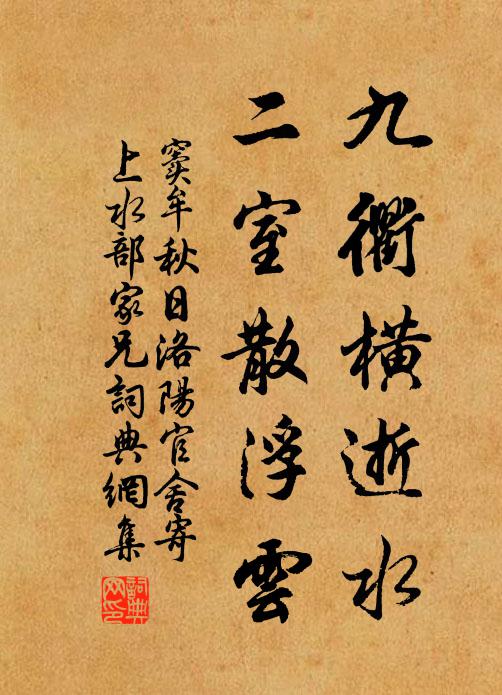 九衢橫逝水
二室散浮雲
竇牟秋日洛陽官舍寄
上水部家兄詞典網集
詞典
网印